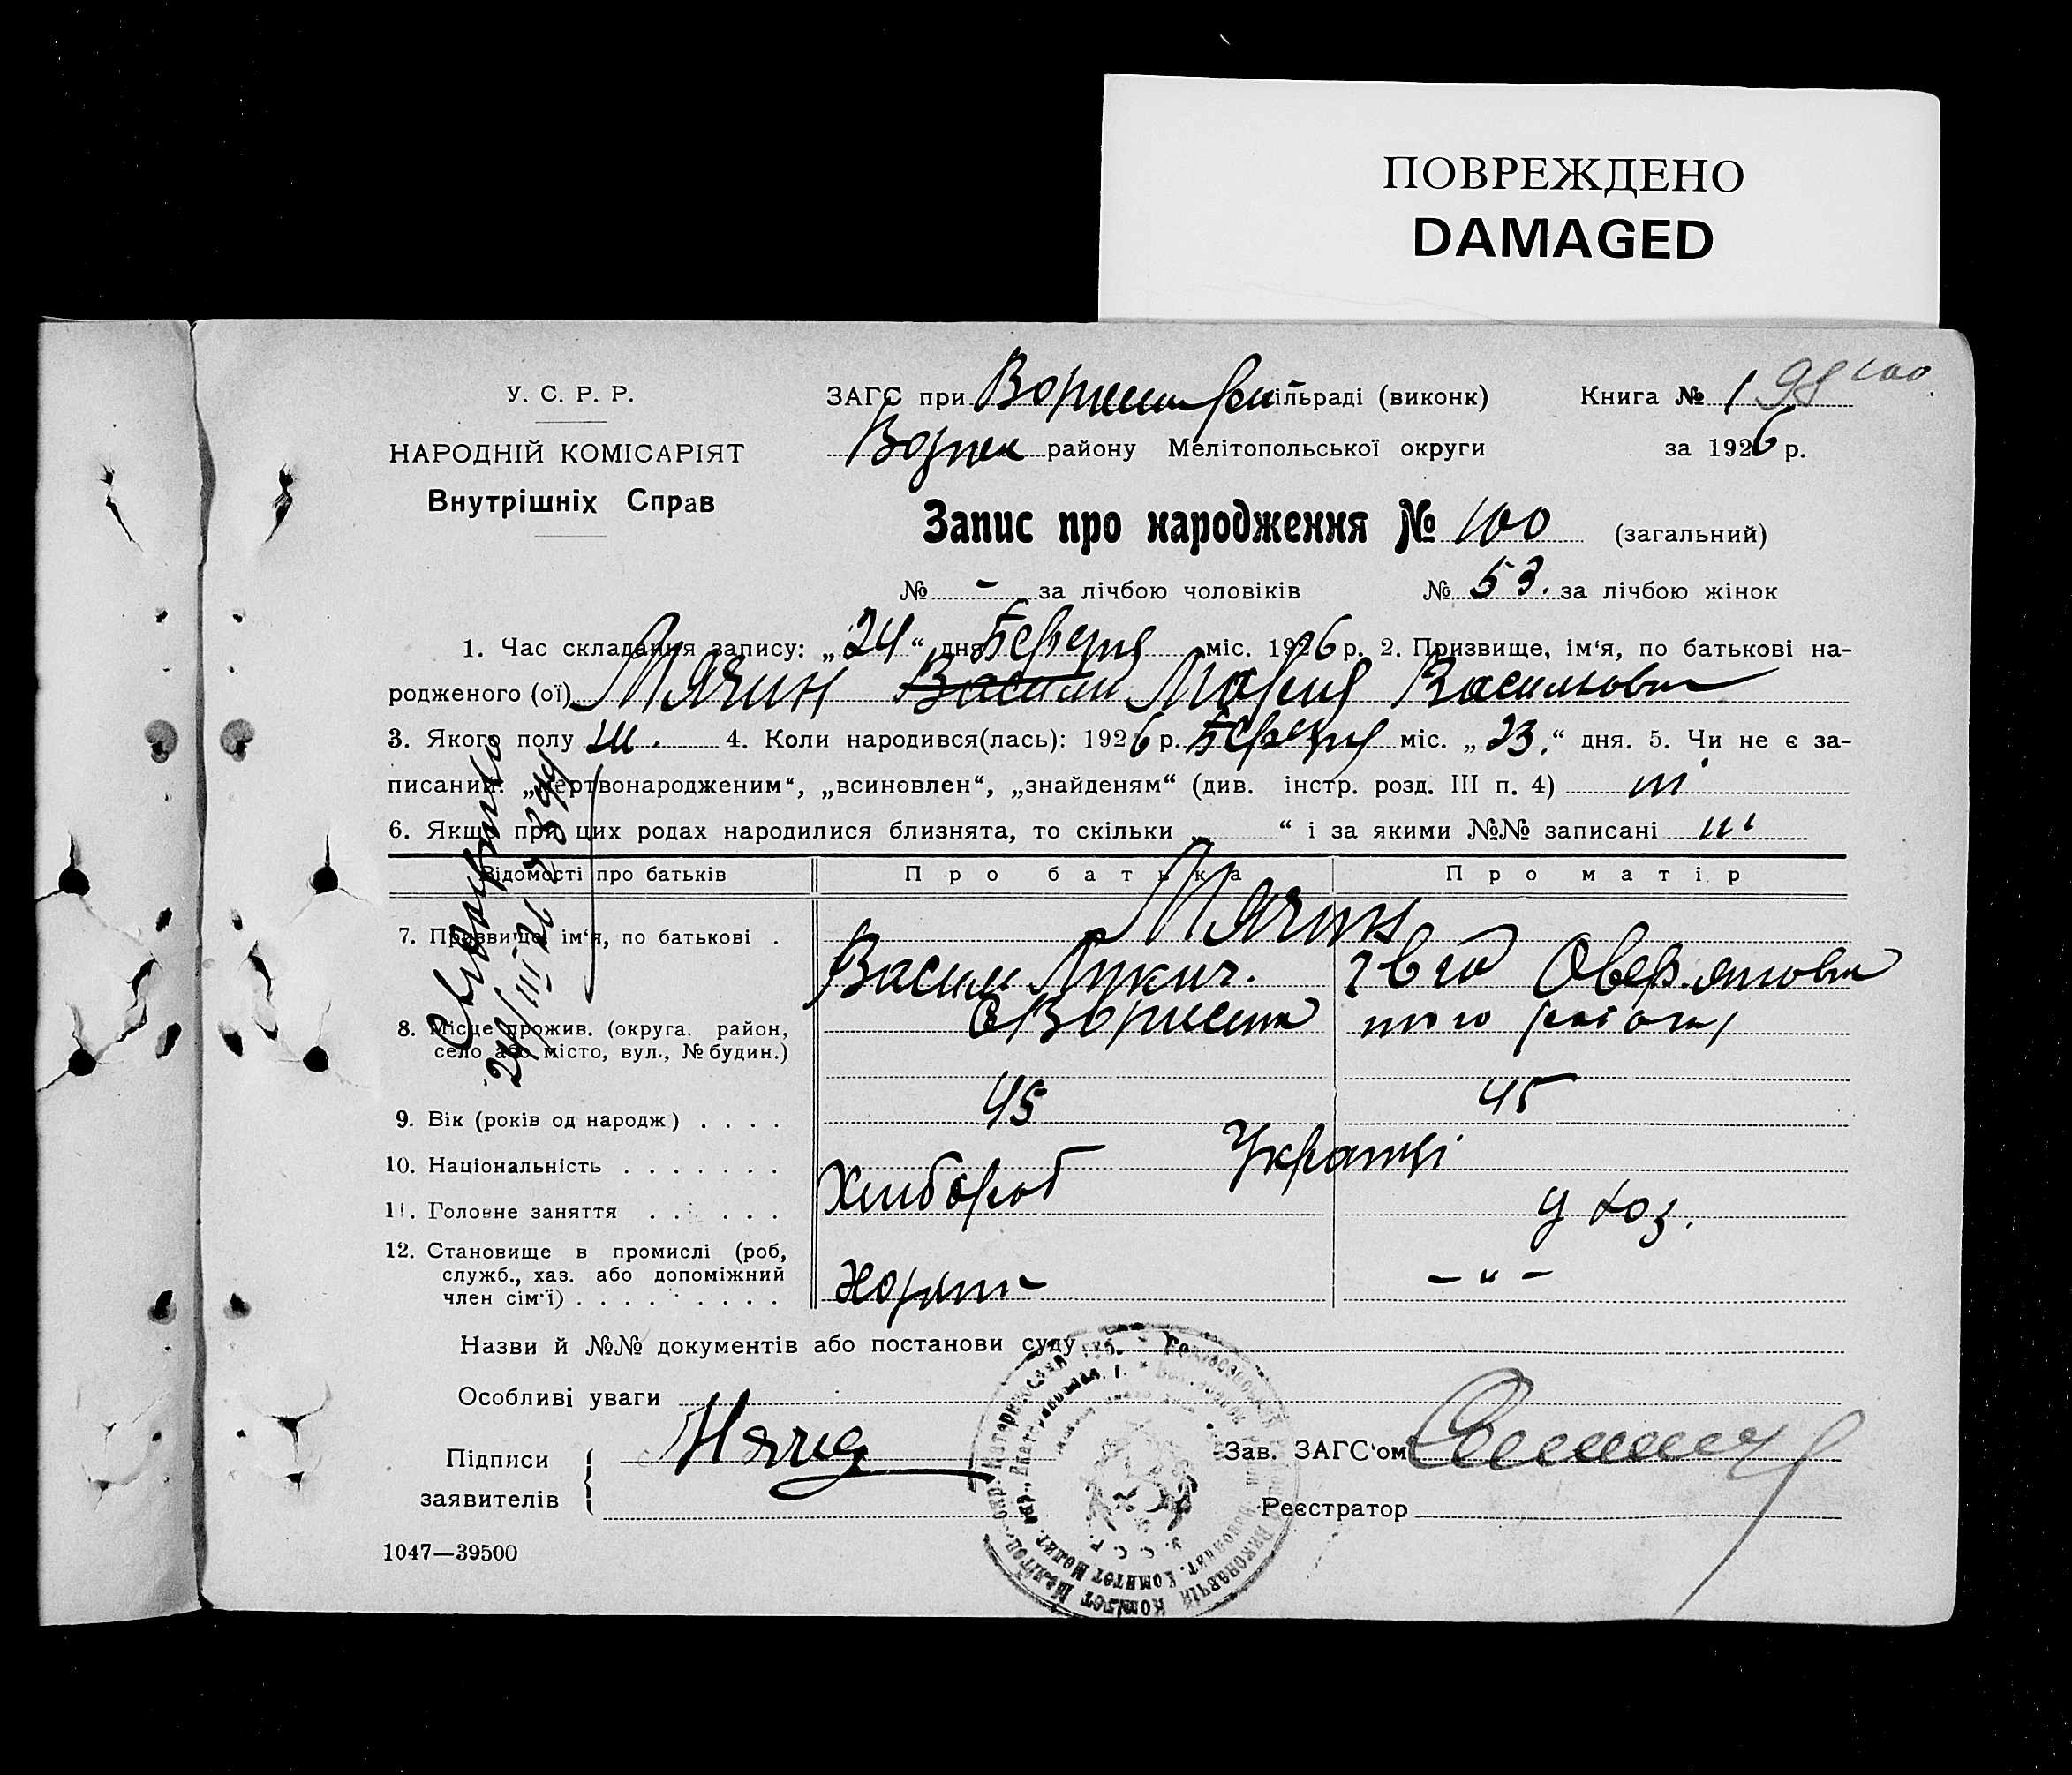 ПОВРЕЖДЕНО
DAMAGED
У. С. Р. Р.
НАРОДНІЙ КОМІСАРІЯТ
Внутрішніх Справ
ЗАГС при сільраді (виконк)
району Мелітопольської округи
Книга № 1 98 100
за 1926 р.
Запис про народження № 100 (загальний)
№ - за лічбою чоловіків № 53. за лічбою жінок
1. Час складання запису: „24“ дня Березня міс. 1926 р. 2. Призвище, ім‘я, по батькові на-
родженого (ої) Мячин Васили Мария Васильовна
3. Якого полу 4. Коли народився(лась): 1926 р. Березня міс. „23.“ дня. 5. Чи не є за-
писаний: „мертвонародженим“, „всиновлен“, „знайденям“ (див. інстр. розд. III п. 4) ні
6. Якщо при цих родах народилися близнята, то скільки „ “ і за якими №№ записані ні
Відомості про батьків Про батька Про матір
7. Призвище, ім‘я, по батькові . Мячин
Васили Лукич.
8. Місце прожив. (округа. район,
село або місто, вул., № будин.)
того району
9. Вік (років од народж) . . . . 45 45
10. Національність . . . . . . . Українці
11. Головне заняття . . . . . . Хлибороб у хоз.
12. Становище в промислі (роб,
служб., хаз. або допоміжний
член сім‘ї) . . . . . . . . . – „ –
Назви й №№ документів або постанови суду
Особливі уваги
Підписи
заявителів
Зав. ЗАГС‘ом
Реєстратор
1047—39500
24/III 26